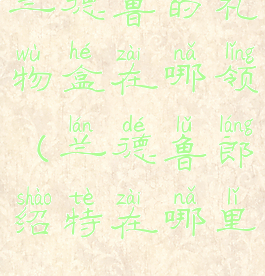 兰德鲁的礼
wù hé zài nǎ lǐng
物盒在哪领
lán dé lǔ láng
(兰德鲁郎
shào tè zài nǎ lǐ
绍特在哪里